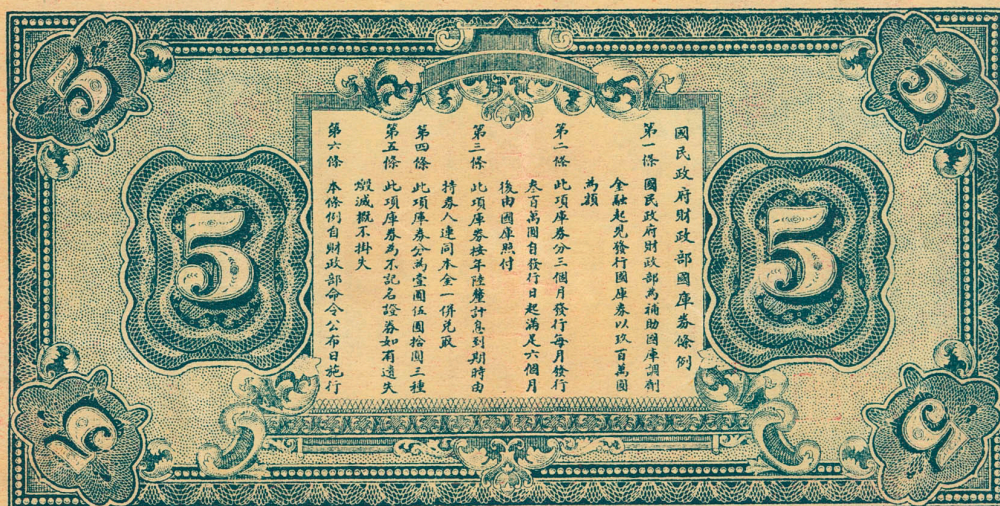 國民政府財政部國庫券條例
第一條 國民政府財政部為補助國庫調劑
金融起見發行國庫券以玖百萬圓
為額
第二條 此項庫券分三個月發行每月發行
叁百萬圓自發行日起滿足六個月
後由國庫照付
第三條 此項庫券按年陸釐計息到期時由
持券人連同本金一併兌取
第四條 此項庫券分為壹圓伍圓拾圓三種
第五條 此項庫券為不記名證券如有遺失
燬滅概不掛失
第六條 本條例自財政部命令公布日施行
5
5
5
5
5
5